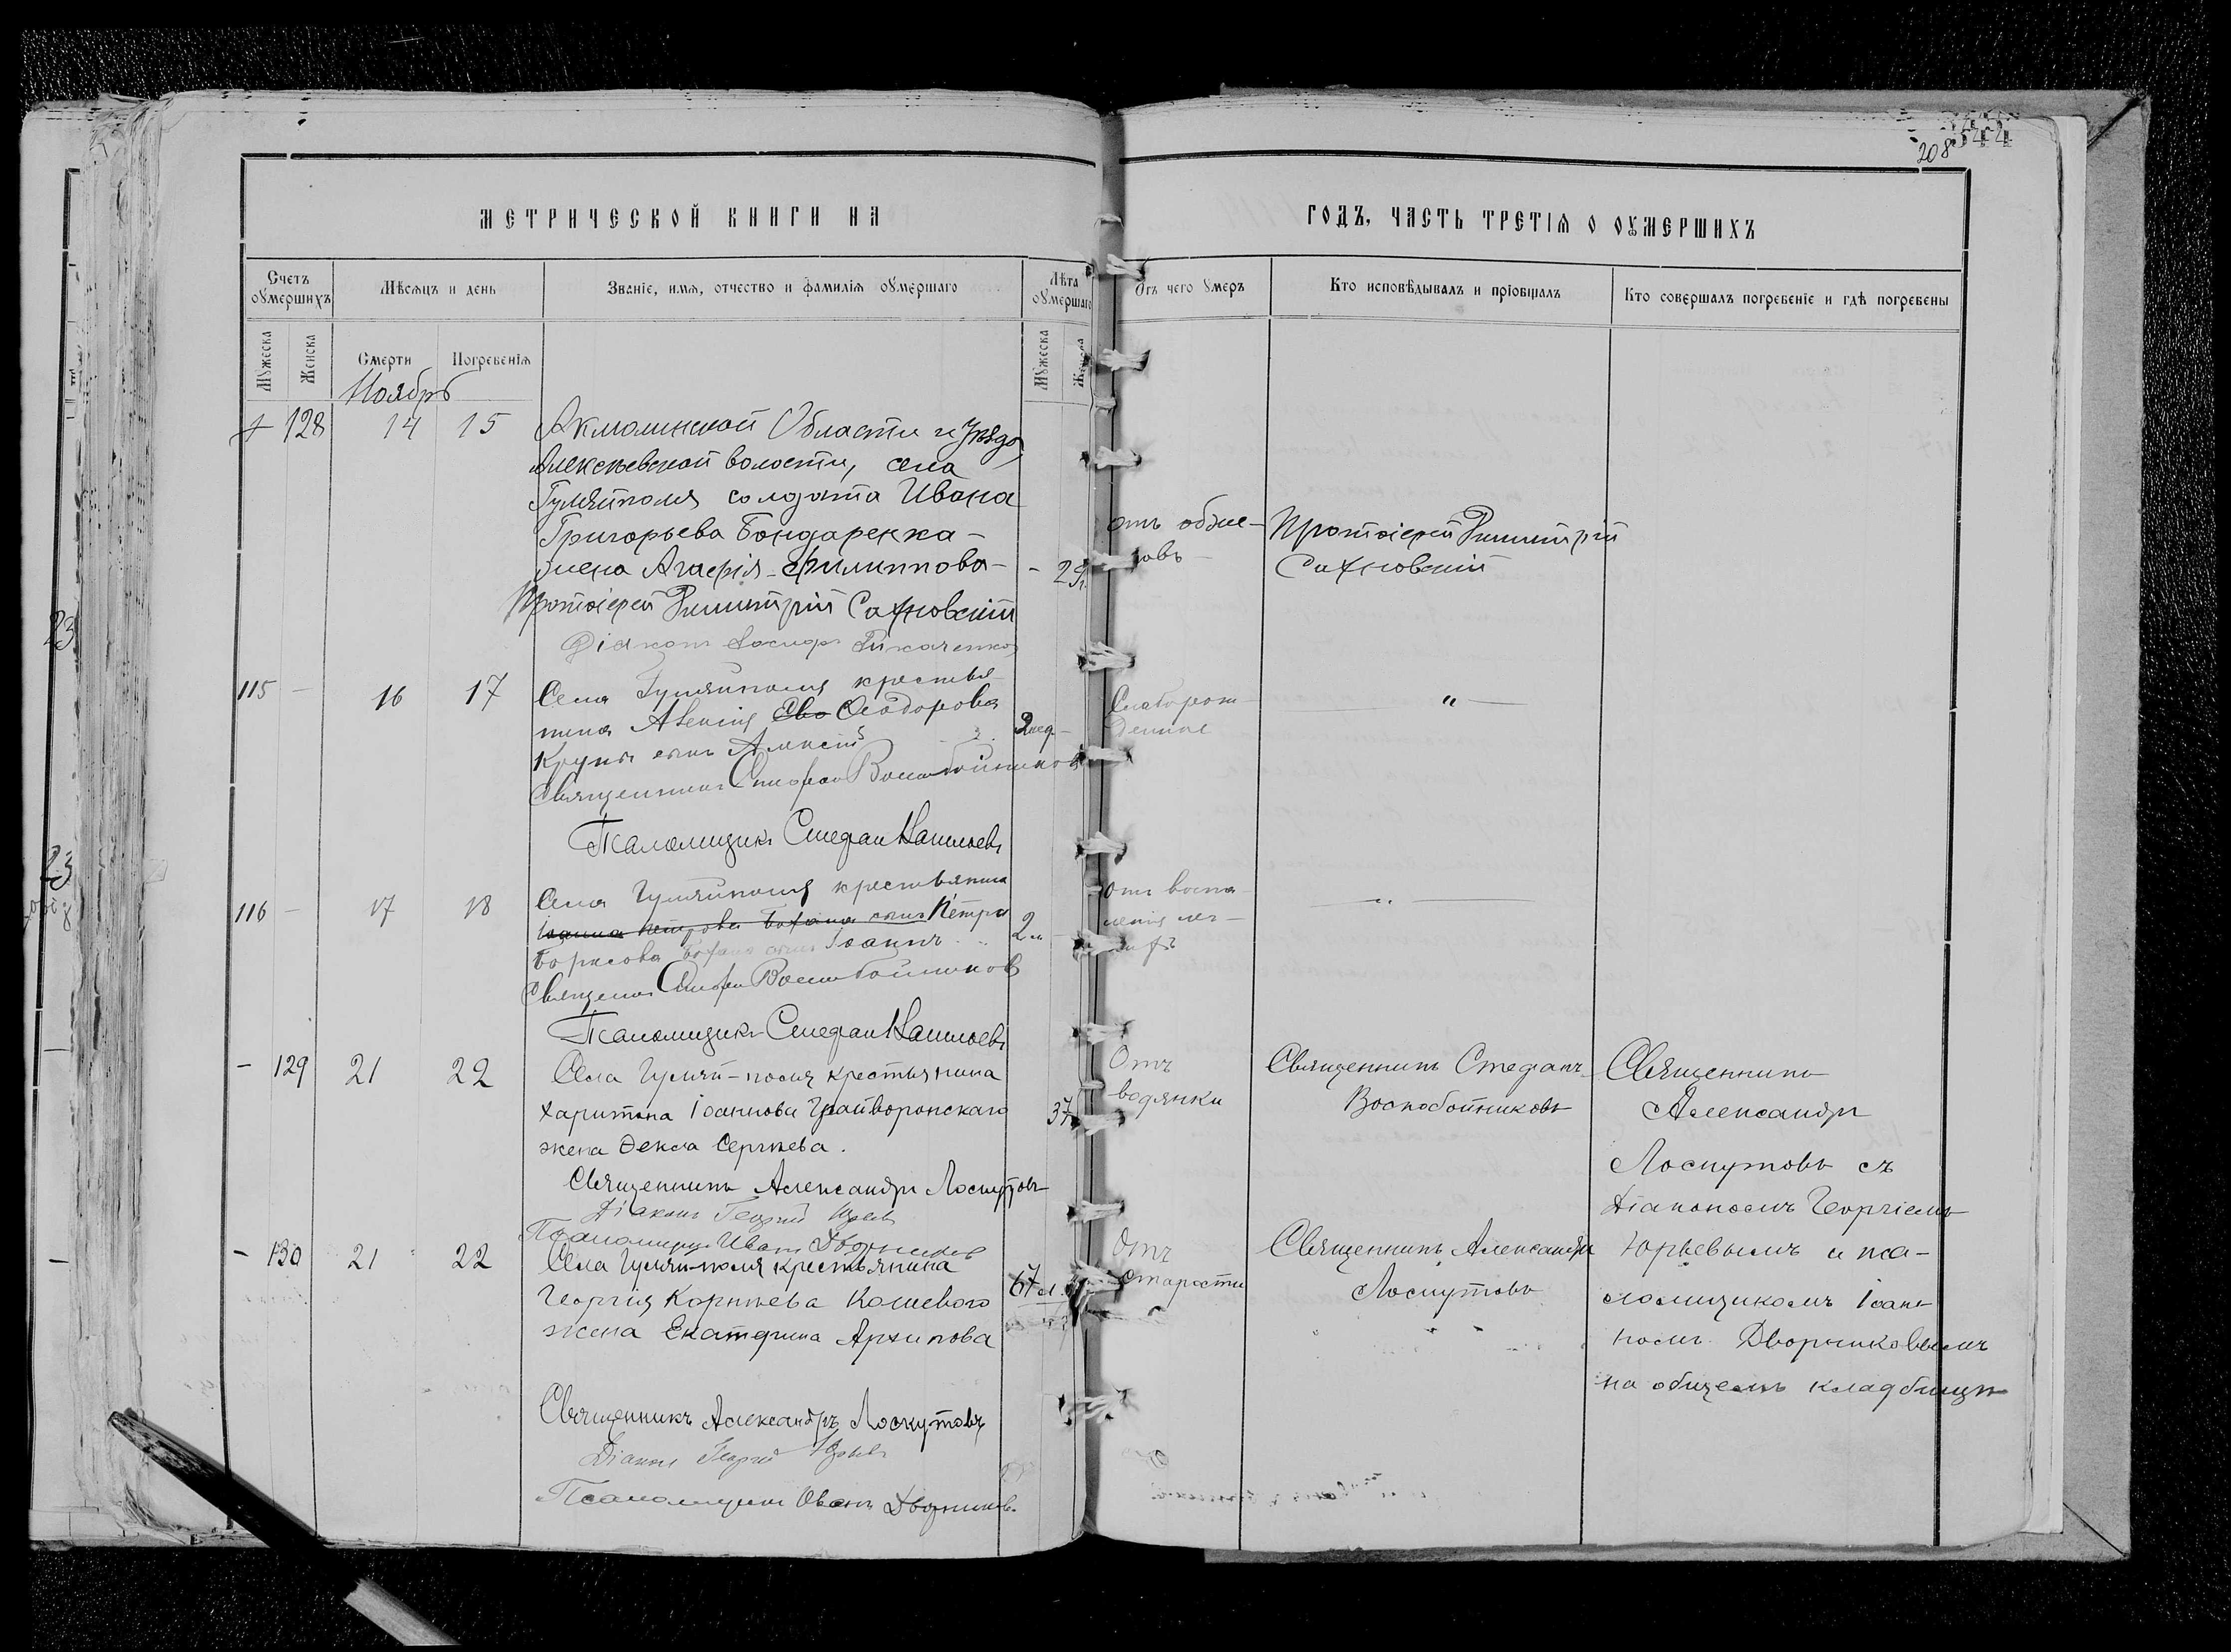 208
344
МЕТРИЧЕСКОЙ КНИГИ НА
ГОДЪ, ЧАСТЬ ТРЕТІЯ О ОУМЕРШИХЪ
Счетъ оумершихъ
Мѣсяцъ и день
Званіе, имя, отчество и фамилія оумершаго
Лѣта оумершаго
Отъ чего умеръ
Кто исповѣдывалъ и пріобщалъ
Кто совершалъ погребеніе и гдѣ погребены
Мужеска
Женска
Смерти
Погребенія
Мужеска
Женска
Ноябрь
128 14 15 Акмолинской Области и Уѣзда
Алексѣевской волости, села
Гуляйполя солдата Ивана
Григорьева Бондаренка -
жена Агафія Филиппова - - 29
отъ
Протоіерей Димитрій
Сахновскій
Протоіерей Димитрій Сахновскій
Діаконъ
115 - 16 17 Села Гуляйполя крестья-
нина Алексія Ѳеодорова
Крупы сынъ Алексій 2 нед -
Слаборож-
деніе
"
Священникъ Стефанъ Воскобойниковъ
Псаломщикъ Стефанъ
116 - 17 18 Села Гуляйполя крестьянина
Іоанна Петрова сынъ Петра
Борисова сынъ Іоаннъ 2
отъ воспа-
ленія лег-
кихъ
"
Священникъ Стефанъ Воскобойниковъ
Псаломщикъ Стефанъ
- 129 21 22 Села Гуляй-поля крестьянина
Харитона Іоаннова Грайворонскаго
жена Ѳекла Сергѣева. 37
Отъ
водянки
Священникъ Стефанъ
Воскобойниковъ
Священникъ Александръ Лоскутовъ
Діаконъ Георгій Юрьевъ
Псаломщикъ Иванъ Дворниковъ
- 130 21 22 Села Гуляй-поля крестьянина
Георгія Корнѣева Кошевого
жена Екатерина Архипова
67 л.
Отъ
старости
Священникъ Александръ
Лоскутовъ
Священникъ
Александръ
Лоскутовъ съ
Діакономъ Георгіемъ
Юрьевымъ и пса-
ломщикомъ Іоан-
номъ Дворниковымъ
на общемъ кладбищѣ
Священникъ Александръ Лоскутовъ
Діаконъ Георгій Юрьевъ
Псаломщикъ Иванъ Дворниковъ.
23
23